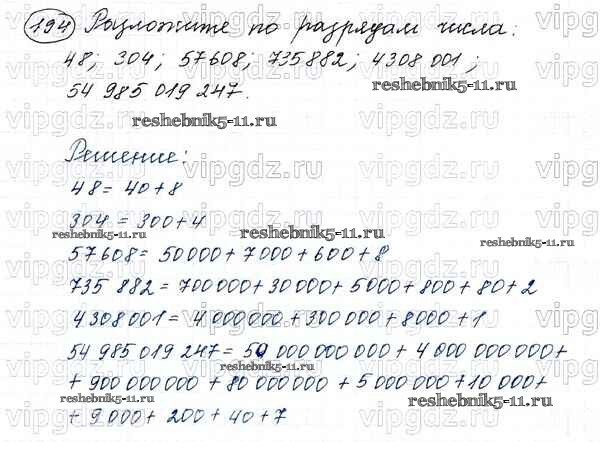 194 Разложите по разрядам числа:
48; 304; 57608; 735882; 4308 001;
54 985 019 247.
reshebnik5-11.ru
reshebnik5-11.ru
Решение:
48 = 40 + 8
304 = 300 + 4
reshebnik5-11.ru
reshebnik5-11.ru
reshebnik5-11.ru
57608 = 50000 + 7000 + 600 + 8
735 882 = 700000 + 30000 + 5000 + 800 + 80 + 2
4308001 = 4 000000 + 300 000 + 8000 + 1
54 985 019 247 = 50 000 000 000 + 4 000 000 000 +
reshebnik5-11.ru
+ 900 000 000 + 80 000 000 + 5 000 000 + 10 000 +
reshebnik5-11.ru
reshebnik5-11.ru
+ 9 000 + 200 + 40 + 7
vipgdz.ru